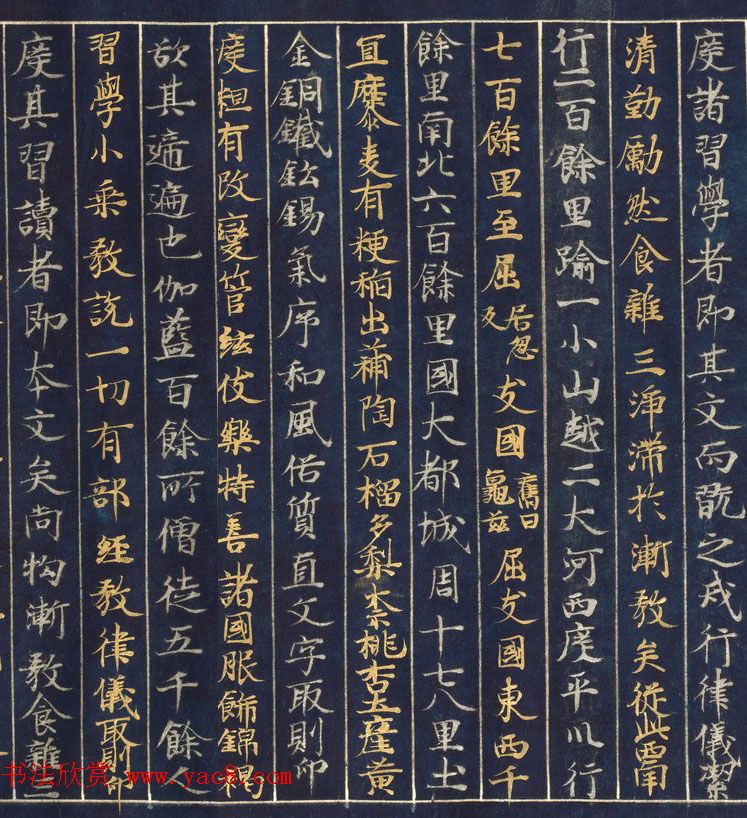 度諸習學者即其文而翫之戒行律儀潔
清勤勵然食雜三淨滯於漸教矣從此西南
行二百餘里踰一小山越二大河西度平川行
七百餘里至屈居忽反支國舊曰龜茲屈支國東西千
餘里南北六百餘里國大都城周十七八里土
宜糜麦有粳稲出蒲陶石榴多梨柰桃杏土產黃
金銅鐵鈆錫氣序和風俗質直文字取則印
度粗有改變管絃伎樂特善諸國服飾錦褐
也伽藍百餘所僧徒五千餘人
習學小乘教說一切有部經教律儀取則印
度其習讀者即本文矣尚拘漸教食雜三
书法欣赏 www.yac8.com